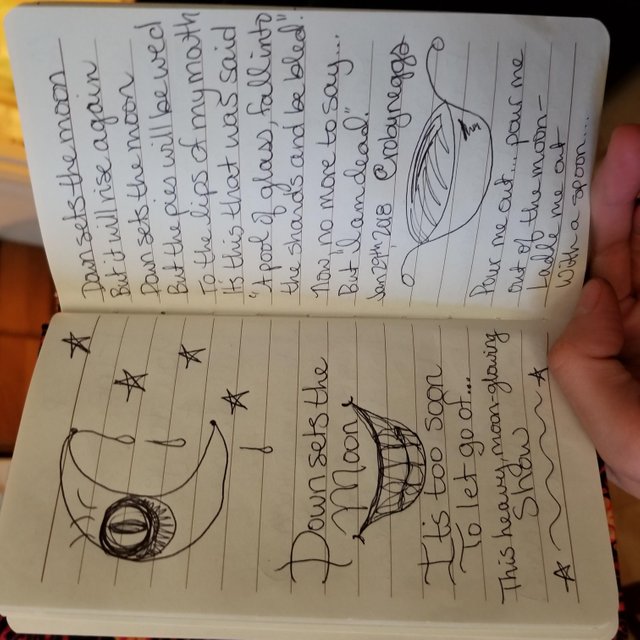 Down sets the
Moon
It's too soon
To let go of...
This heavy, moon-glowing
Show
Down sets the moon
But it will rise again
Down sets the moon
But the pies will be wed
To the lips of my math
It's this that was said
"A pool of glass, fall into
the shards and be bled."
Now, no more to say...
But "I am dead."
Jan 29th, 218 @robyneggs
Pour me out... pour me
out of the moon-
Ladle me out
With a spoon...